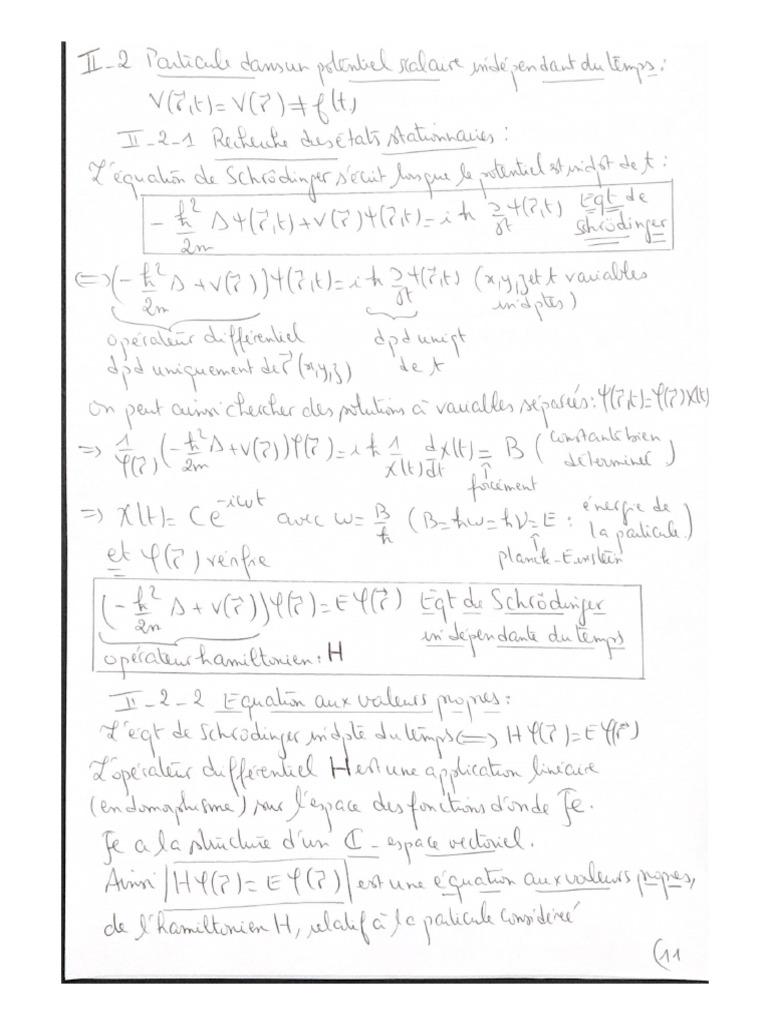 II-2 Particule dans un potentiel scalaire indépendant du temps:
V(r⃗,t) = V(r⃗) ≠ f(t)
II-2-1 Recherche des états stationnaires:
L'équation de Schrödinger s'écrit lorsque le potentiel est indpt de t:
-ħ²/2m Δ Ψ(r⃗,t) + V(r⃗) Ψ(r⃗,t) = iħ ∂/∂t Ψ(r⃗,t) Eqt de Schrödinger
⟺ (-ħ²/2m Δ + V(r⃗)) Ψ(r⃗,t) = iħ ∂/∂t Ψ(r⃗,t) (x,y,z et t variables indptes)
opérateur différentiel dpd uniqt
dpd uniquement de r⃗(x,y,z) de t
on peut ainsi chercher des solutions à variables séparées: Ψ(r⃗,t) = φ(r⃗)χ(t)
⇒ 1/φ(r⃗) (-ħ²/2m Δ + V(r⃗)) φ(r⃗) = iħ 1/χ(t) d/dt χ(t) = B (constante bien déterminée)
↑ forcément
⇒ χ(t) = C e^{-iωt} avec ω = B/ħ (B = ħω = hν = E : énergie de la particule)
et φ(r⃗) vérifie ↑ planck-Einstein
(-ħ²/2m Δ + V(r⃗)) φ(r⃗) = E φ(r⃗) Eqt de Schrödinger
indépendante du temps
opérateur hamiltonien: H
II-2-2 Equation aux valeurs propres:
L'éqt de Schrödinger indpte du temps ⟺ H φ(r⃗) = E φ(r⃗)
L'opérateur différentiel H est une application linéaire
(endomorphisme) sur l'espace des fonctions d'onde Fe.
Fe a la structure d'un ℂ-espace vectoriel.
Ainsi H φ(r⃗) = E φ(r⃗) est une équation aux valeurs propres,
de l'hamiltonien H, relatif à la particule considérée
(11